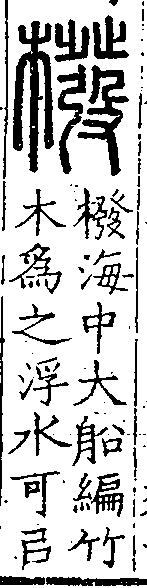 橃
橃海中大船編竹
木爲之浮水可㠯